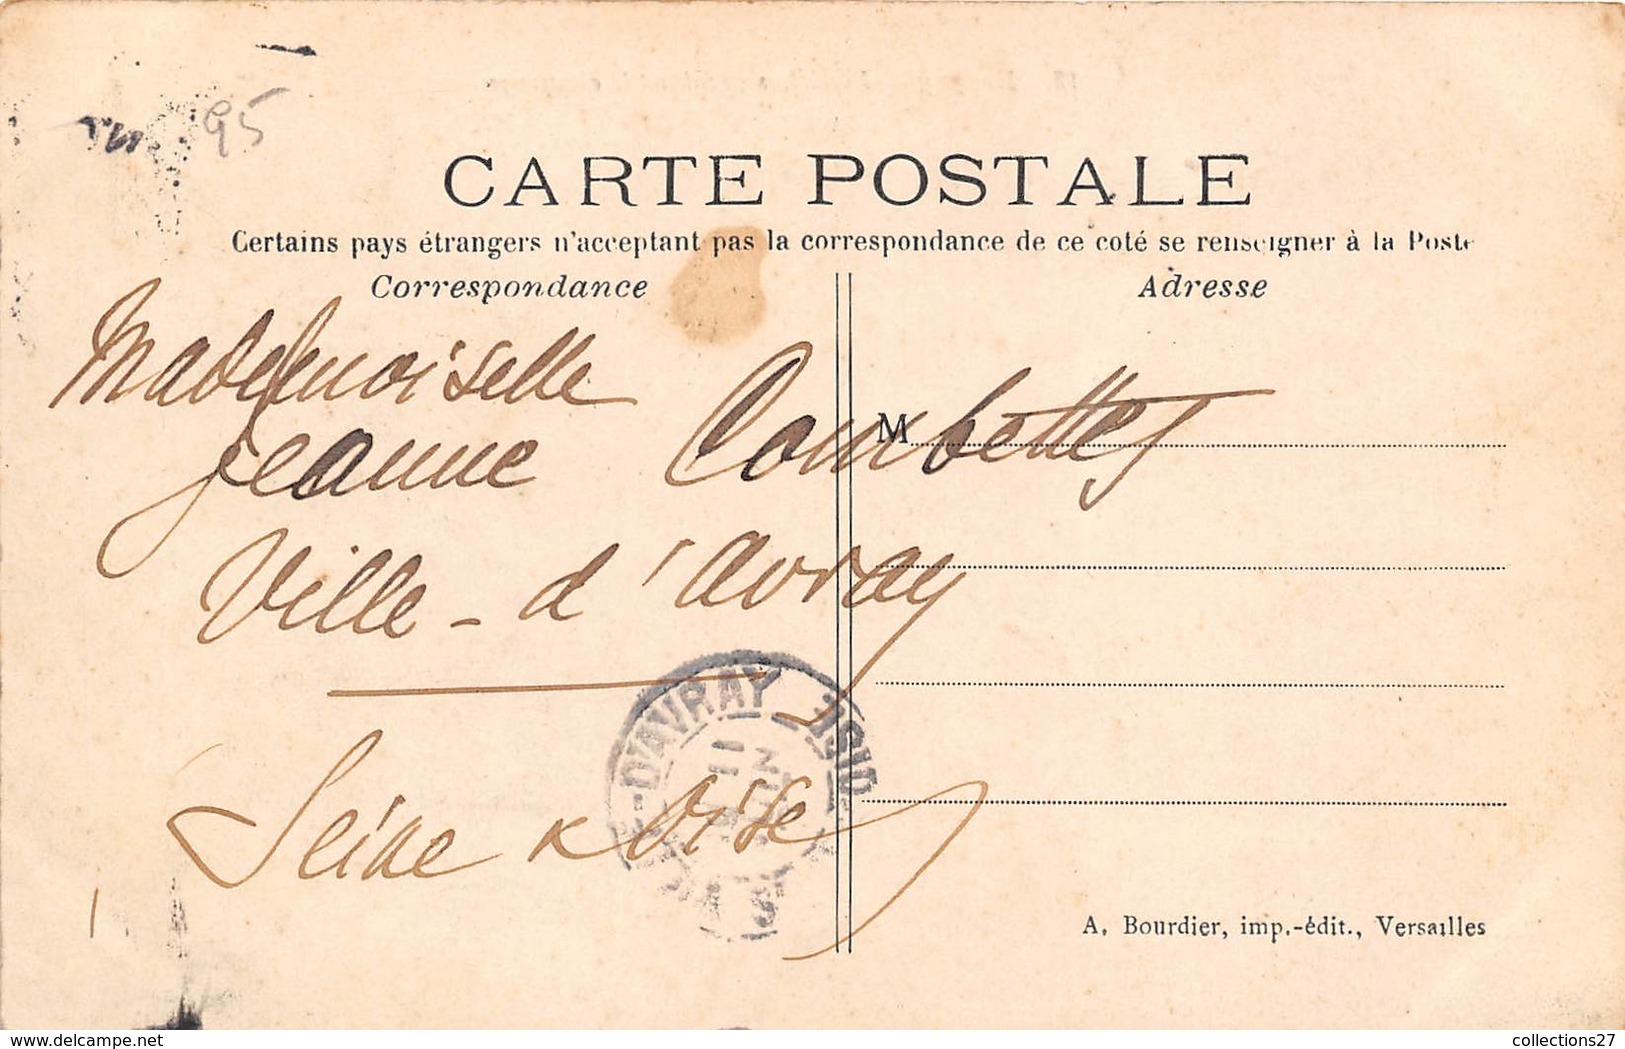 95
CARTE POSTALE
Certains pays étrangers n'acceptant pas la correspondance de ce coté se renseigner à la Poste
Correspondance
Adresse
Mademoiselle
Jeanne Combettes
M
Ville-d'Avray
D'AVRAY
OISE
Seine & Oise
A. Bourdier, imp.-édit., Versailles
delcampe.net
collections27